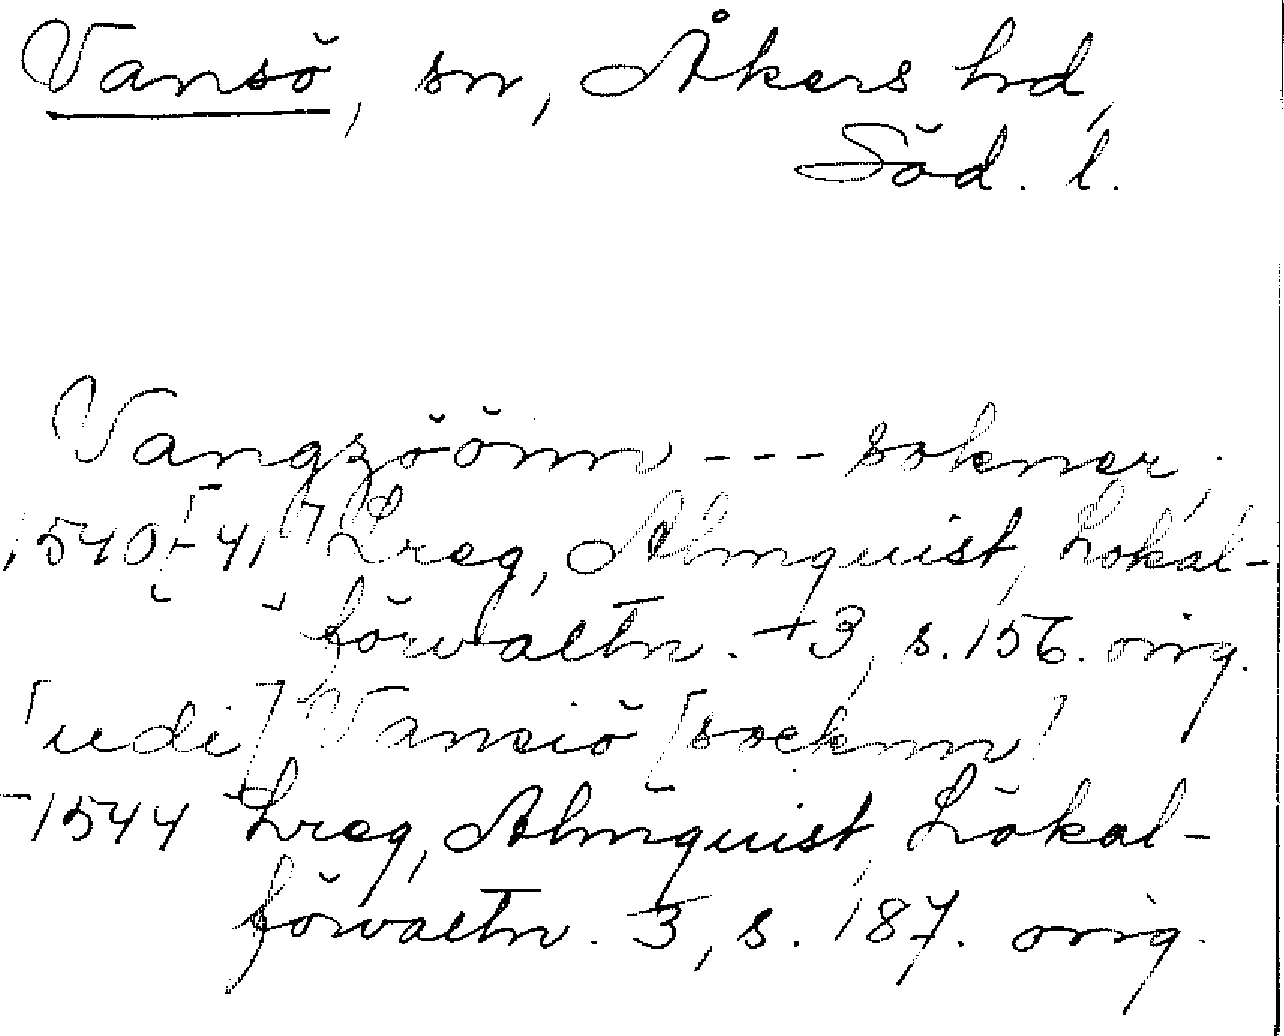 Vansö, sn, Åkers hd,
Söd. l.
Vangzöönn --- sokner.
1540[-41] Lreg, Almquist, Lokal-
förvaltn. 3, s. 156. orig.
[udi] Vansiö [socknn]
1544 Lreg, Almquist, Lokal-
förvaltn. 3, s. 187. orig.